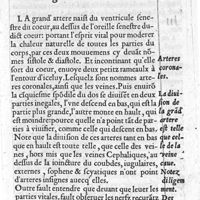 LA grand' artere naist du ventricule sene-
stre du coeur, au dessus de l'oreille senestre du-
dict coeur: portant l'esprit vital pour moderer
la chaleur naturelle de toutes les parties du
corps, par ces deux mouuemens cy deuāt nō-
mes sistole & diastole. Et incontinant qu'elle
sort du coeur, enuoye deux petits rameaulx à
l'entour d'icelluy. Lesquelz sont nommés arte-
res coronales, ainsi que les veines. Puis suruint
la eslquisse espōdile du dos se diuise en deux
parties inegales, l'vne descend en bas, qui est la
partie plus grande, l'autre monte en hault, qui
est moindre pource quelle n'a point tāt de par-
ties à viuifier, comme celle qui descend en bas.
Note que la diuision de ces arteres tant en bas
que en hault est toute telle, que celle des vei-
nes, hors mis que les veines Cephaliques, au
dessus de la ioincture du coubdes, iugulaires,
externes, sophene & scyatiques n'ont point
d'arteres insignes auecq' elles.
Outre fault entendre que deuant que leuer les
parties vitales, fault obseruer les nerfs recurās.
Arteres
corona-
les.
La diui-
sion de
la grād
artere
est telle
que cel-
le de la
veine
caue.
Notez
diligem
ment.
Des